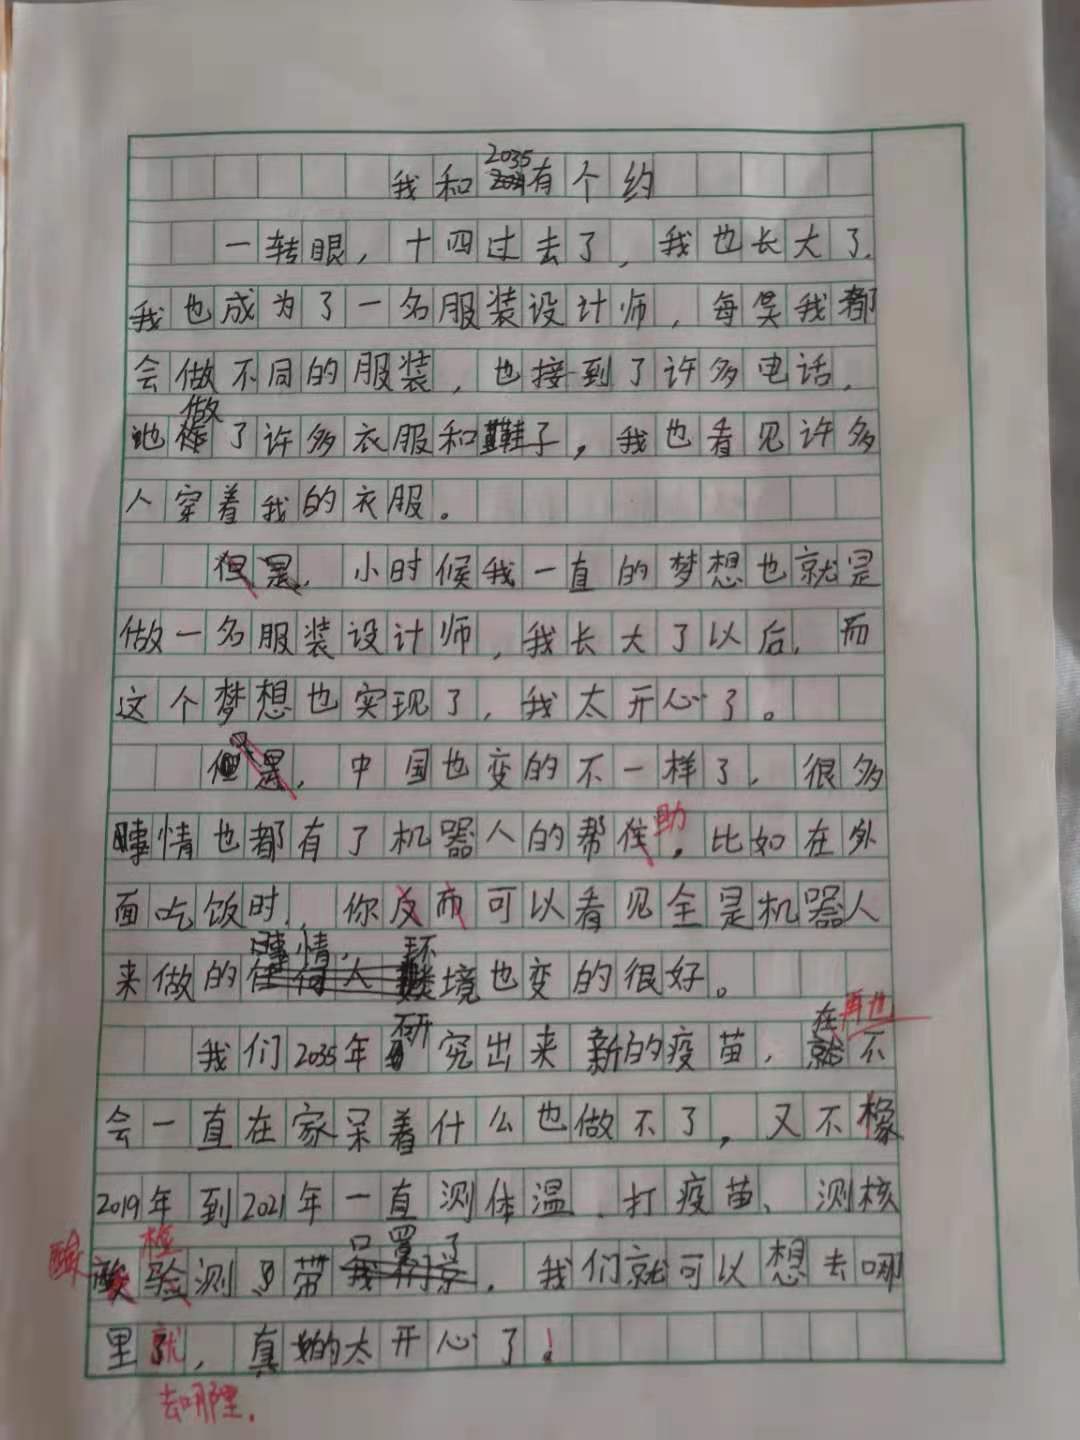 我和2035有个约
一转眼，十四过去了，我也长大了.
我也成为了一名服装设计师，每昊我都
会做不同的服装，也接到了许多电话，
她做了许多衣服和鞋子，我也看见许多
人穿着我的衣服。
但是，小时候我一直的梦想也就是
做一名服装设计师，我长大了以后，而
这个梦想也实现了，我太开心了。
但是，中国也变的不一样了，很多
事情也都有了机器人的帮助，比如在外
面吃饭时，你反而可以看见全是机器人
来做的事情，环境也变的很好。
我们2035年研究出来新的疫苗，在再也不
会一直在家呆着什么也做不了，又不橡
2019年到2021年一直测体温、打疫苗、测核
酸检测、带口罩了，我们就可以想去哪
里就去哪里，真的太开心了！